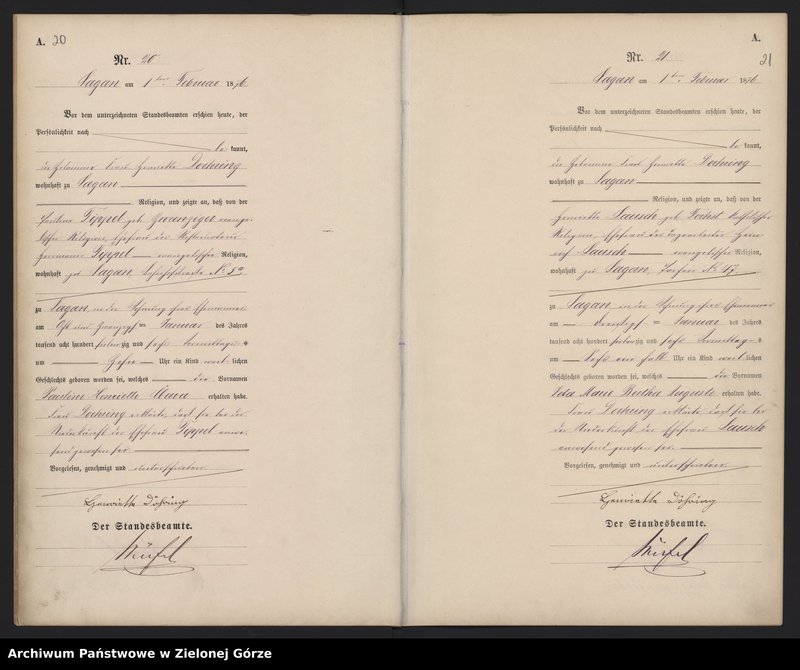 A. 20
Nr. 20
Sagan am 1ten Februar 1876
Vor dem unterzeichneten Standesbeamten erschien heute, der
Persönlichkeit nach
be kannt,
die Hebamme Frau Henriette Doehring
wohnhaft zu Sagan
Religion, und zeigte an, daß von der
Pauline Tippel geb. evange-
lischer Religion, Ehefrau des
Hermann Tippel evangelischer Religion,
wohnhaft zu Sagan, No 5
zu Sagan in der Wohnung ihres Ehemannes
am acht und zwanzigsten Januar des Jahres
tausend acht hundert siebenzig und sechs Vormittags
um Uhr ein Kind weib lichen
Geschlechts geboren worden sei, welches die Vornamen
Pauline Henriette Clara erhalten habe.
Frau Doehring erklärte, daß sie bei der
Niederkunft der Ehefrau Tippel anwe-
send gewesen sei.
Vorgelesen, genehmigt und unterschrieben
Henriette Döhring
Der Standesbeamte.
A.
21
Nr. 21
Sagan am 1ten Februar 1876
Vor dem unterzeichneten Standesbeamten erschien heute, der
Persönlichkeit nach
be kannt,
die Hebamme Frau Henriette Doehring
wohnhaft zu Sagan
Religion, und zeigte an, daß von der
Henriette Lausch geb. katholischer
Religion, Ehefrau des
Lausch evangelischer Religion,
wohnhaft zu Sagan,
zu Sagan in der Wohnung ihres Ehemannes
am dreißigsten Januar des Jahres
tausend acht hundert siebenzig und sechs Vormittags
um sechs ein halb Uhr ein Kind weib lichen
Geschlechts geboren worden sei, welches die Vornamen
Ida Marie Bertha Auguste erhalten habe.
Frau Doehring erklärte, daß sie bei
der Niederkunft der Ehefrau Lausch
anwesend gewesen sei.
Vorgelesen, genehmigt und unterschrieben
Henriette Döhring
Der Standesbeamte.
Archiwum Państwowe w Zielonej Górze